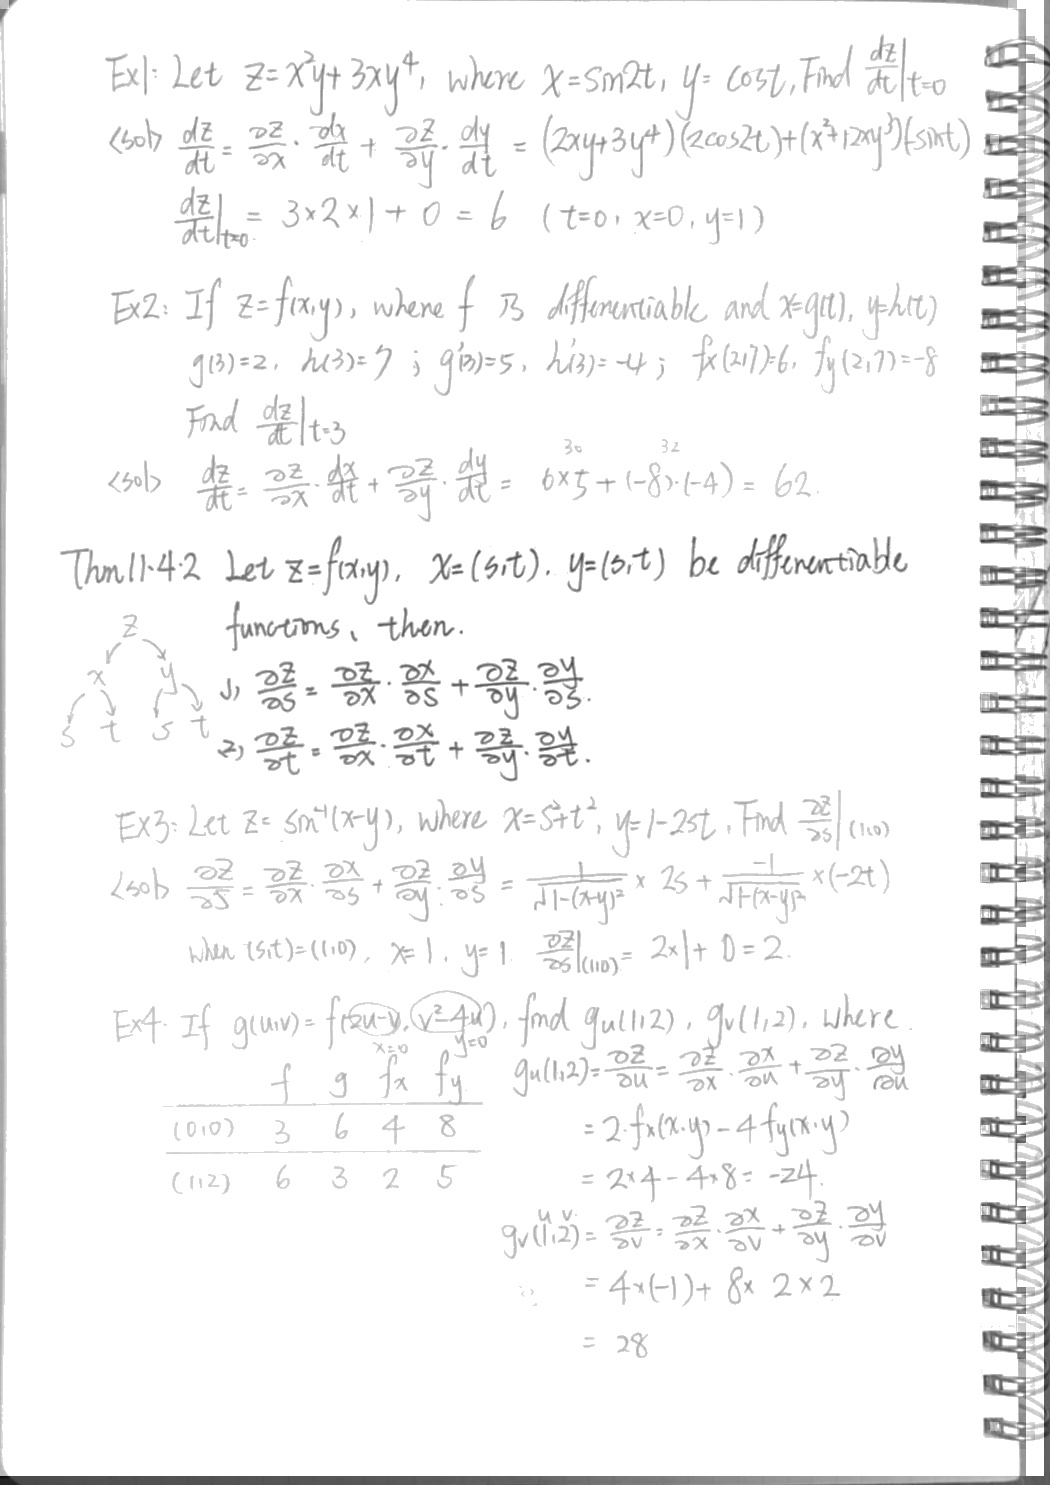 Ex1: Let z=x²y+3xy⁴, where x=sin2t, y=cost, Find dz/dt|t=0
<sol> dz/dt = ∂z/∂x · dx/dt + ∂z/∂y · dy/dt = (2xy+3y⁴)(2cos2t)+(x²+12xy³)(-sint)
dz/dt|t=0 = 3×2×1+0=6 (t=0, x=0, y=1)
Ex2: If z=f(x,y), where f is differentiable and x=g(t), y=h(t)
g(3)=2, h(3)=7; g'(3)=5, h'(3)=-4; fx(2,7)=6, fy(2,7)=-8
Find dz/dt|t=3
30 32
<sol> dz/dt = ∂z/∂x · dx/dt + ∂z/∂y · dy/dt = 6×5+(-8)·(-4) = 62.
Thm11.4.2 Let z=f(x,y), x=(s,t), y=(s,t) be differentiable
functions, then.
z
x y
s t s t
1) ∂z/∂s = ∂z/∂x · ∂x/∂s + ∂z/∂y · ∂y/∂s.
2) ∂z/∂t = ∂z/∂x · ∂x/∂t + ∂z/∂y · ∂y/∂t.
Ex3: Let z=sin⁻¹(x-y), where x=s²+t², y=1-2st, Find ∂z/∂s|(1,0)
<sol> ∂z/∂s = ∂z/∂x · ∂x/∂s + ∂z/∂y · ∂y/∂s = 1/√1-(x-y)² × 2s + -1/√1-(x-y)² ×(-2t)
when (s,t)=(1,0), x=1, y=1 ∂z/∂s|(1,0) = 2×1+0=2.
Ex4. If g(u,v)=f(2u-v, v²-4u), find gu(1,2), gv(1,2), where
x=0 y=0
f g fx fy
(0,0) 3 6 4 8
(1,2) 6 3 2 5
gu(1,2)=∂z/∂u = ∂z/∂x · ∂x/∂u + ∂z/∂y · ∂y/∂u
=2·fx(x,y)-4fy(x,y)
=2×4-4×8=-24.
u v
gv(1,2)=∂z/∂v = ∂z/∂x · ∂x/∂v + ∂z/∂y · ∂y/∂v
=4×(-1)+8×2×2
=28